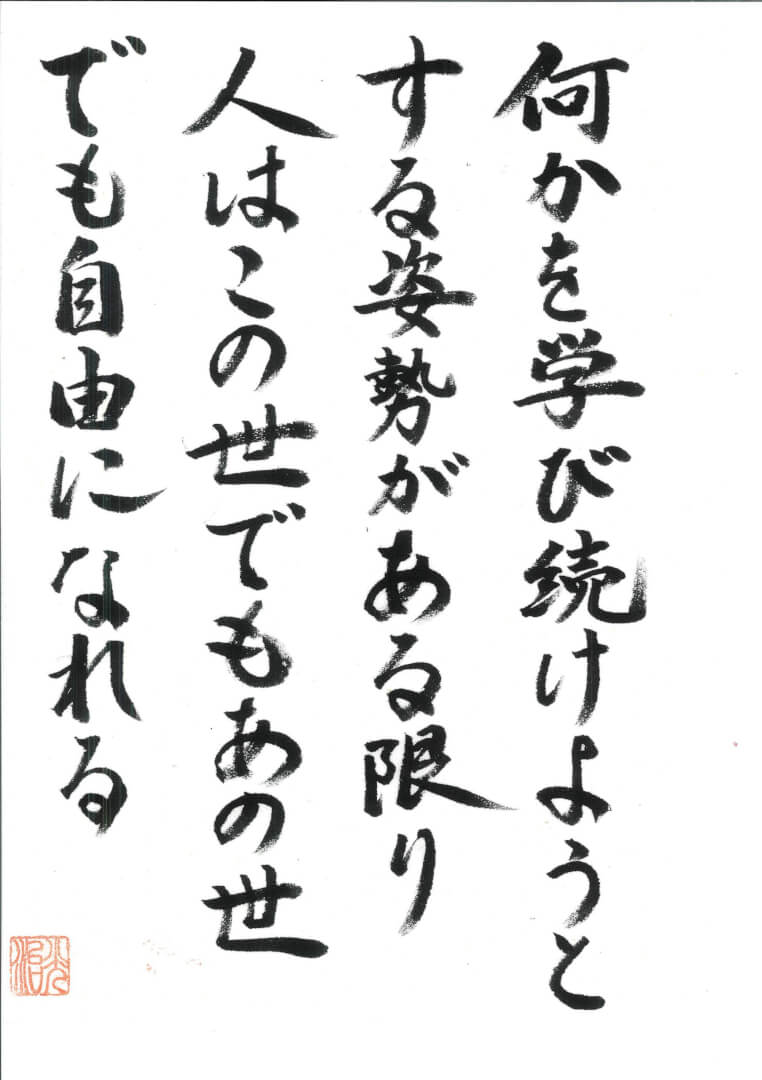 何かを学び続けようと
する姿勢がある限り
人はこの世でもあの世
でも自由になれる